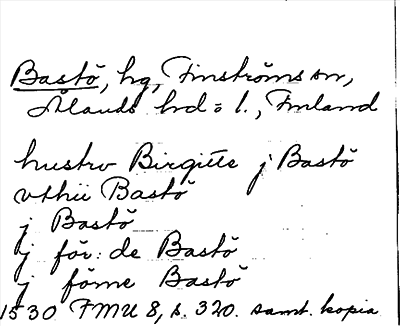 Bastö, hg, Finströms sn,
Ålands hd = l., Finland
hustro Birgitte j Bastö
vthii Bastö
j Bastö
j för: de Bastö
j förne Bastö
1530 FMU 8, s. 320. samt. kopia